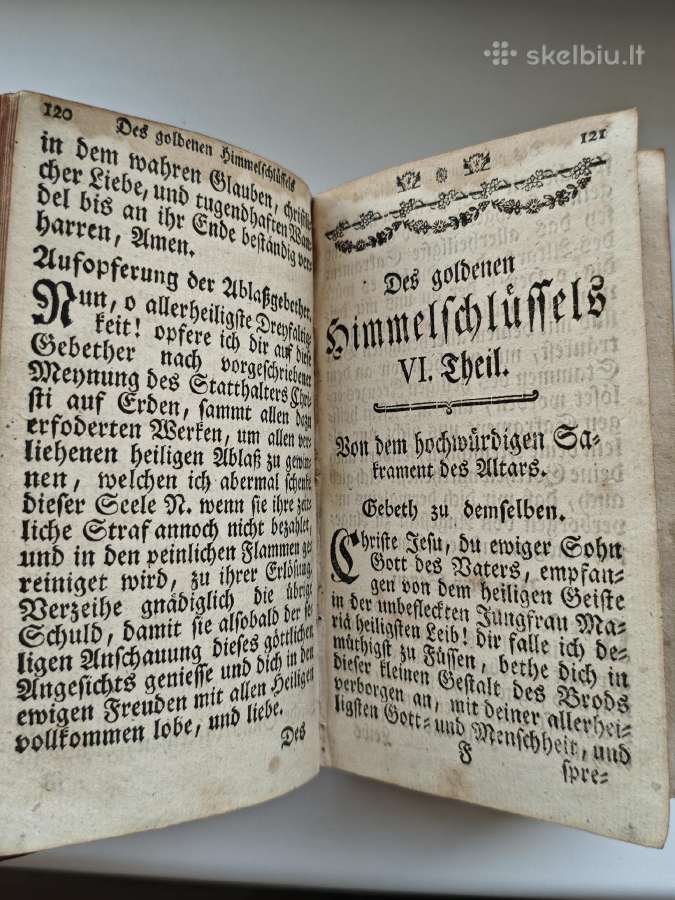 skelbiu.lt
120
Des goldenen Himmelschlüssels
in dem wahren Glauben, christli-
cher Liebe, und tugendhaften Wan-
del bis an ihr Ende beständig ver-
harren, Amen.
Aufopferung der Ablaßgebether.
Nun, o allerheiligste Dreyfaltig-
keit! opfere ich dir auf diese
Gebether nach vorgeschriebener
Meynung des Statthalters Chri-
sti auf Erden, sammt allen dazu
erfoderten Werken, um allen ver-
liehenen heiligen Ablaß zu gewin-
nen, welchen ich abermal schenke
dieser Seele N. wenn sie ihre zeit-
liche Straf annoch nicht bezahlet,
und in den peinlichen Flammen ge-
reiniget wird, zu ihrer Erlösung.
Verzeihe gnädiglich die übrige
Schuld, damit sie alsobald der se-
ligen Anschauung dieses göttlichen
Angesichts geniesse und dich in den
ewigen Freuden mit allen Heiligen
vollkommen lobe, und liebe.
Des
121
Des goldenen
Himmelschlüssels
VI. Theil.
Von dem hochwürdigen Sa-
krament des Altars.
Gebeth zu demselben.
Christe Jesu, du ewiger Sohn
Gott des Vaters, empfan-
gen von dem heiligen Geiste
in der unbefleckten Jungfrau Ma-
riä heiligsten Leib! dir falle ich de-
müthigst zu Füssen, bethe dich in
dieser kleinen Gestalt des Brods
verborgen an, mit deiner allerhei-
ligsten Gott- und Menschheit, und
F
spre-